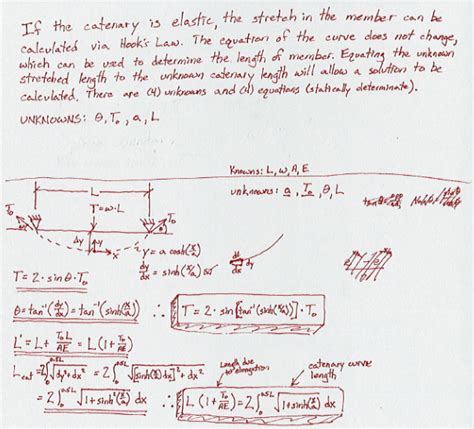 If the catenary is elastic, the stretch in the member can be
calculated via Hook's Law. The equation of the curve does not change,
which can be used to determine the length of member. Equating the unknown
stretched length to the unknown catenary length will allow a solution to be
calculated. There are (4) unknowns and (4) equations (statically determinate).
UNKNOWNS: θ, T₀, a, L
Knowns: L, w, A, E
unknowns: a, T₀, θ, L
L
T=w·L
T₀
T₀
Δy
y
x
y = a cosh(x/a)
dy/dx = sinh(x/a)
dy
dx
T = 2·sin θ·T₀
θ = tan⁻¹(dy/dx) = tan⁻¹(sinh(x/a)) ∴ T = 2·sin[tan⁻¹(sinh(x/a))]·T₀
L' = L + T₀L/AE = L(1 + T₀/AE)
Length due to elongation
catenary curve length
L_cat = 2∫₀^0.5L √(dy² + dx²) = 2∫₀^0.5L √([sinh(x/a)dx]² + dx²)
= 2∫₀^0.5L √(1 + sinh²(x/a)) dx ∴ L(1 + T₀/AE) = 2∫₀^0.5L √(1 + sinh²(x/a)) dx